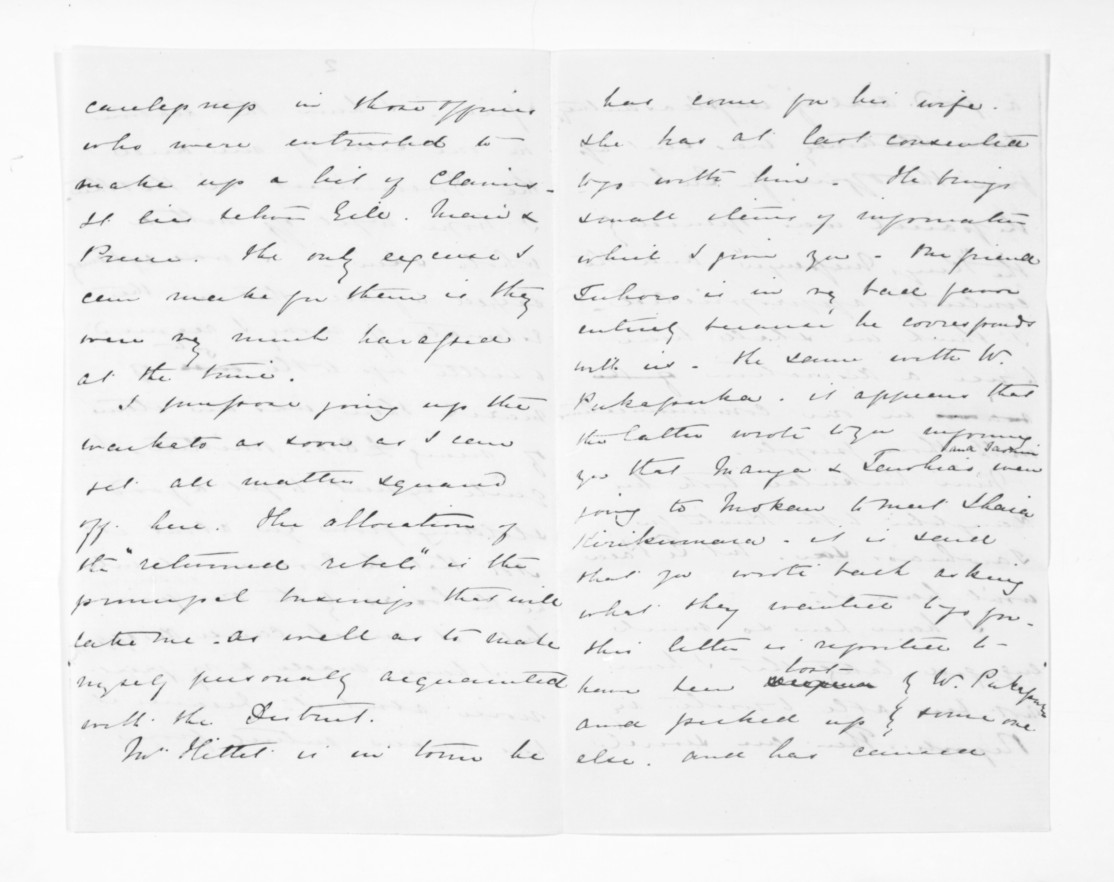 2
carelessness in those officers
who were entrusted to
make up a list of Claims -
It lies between Gill. Mair &
Preece. The only excuse I
can make for them is they
were vy much harassed
at the time.
I purpose going up the
Waikato as soon as I can
get all matters squared
off here. The allocation of
the "returned rebels" is the
principal business that will
take me. as well as to make
myself personally acquainted
with the District.
Mr Hettit is in town he
has come for his wife.
She has at last consented
to go with him - He brings
small items of information
which I give you - Our friend
Tuhoro is in vy bad favor
entirely because he corresponds
with us - The same with W.
Pukapuka. it appears that
the latter wrote to you informing
you that Manga & Tawhiao were
going to Mokau to meet Ihaia
Kirikumara - it is said
that you wrote back asking
what they wanted to go for -
this letter is reported to
have been lost by W. Pukapuka
and picked up by some one
else. and has caused